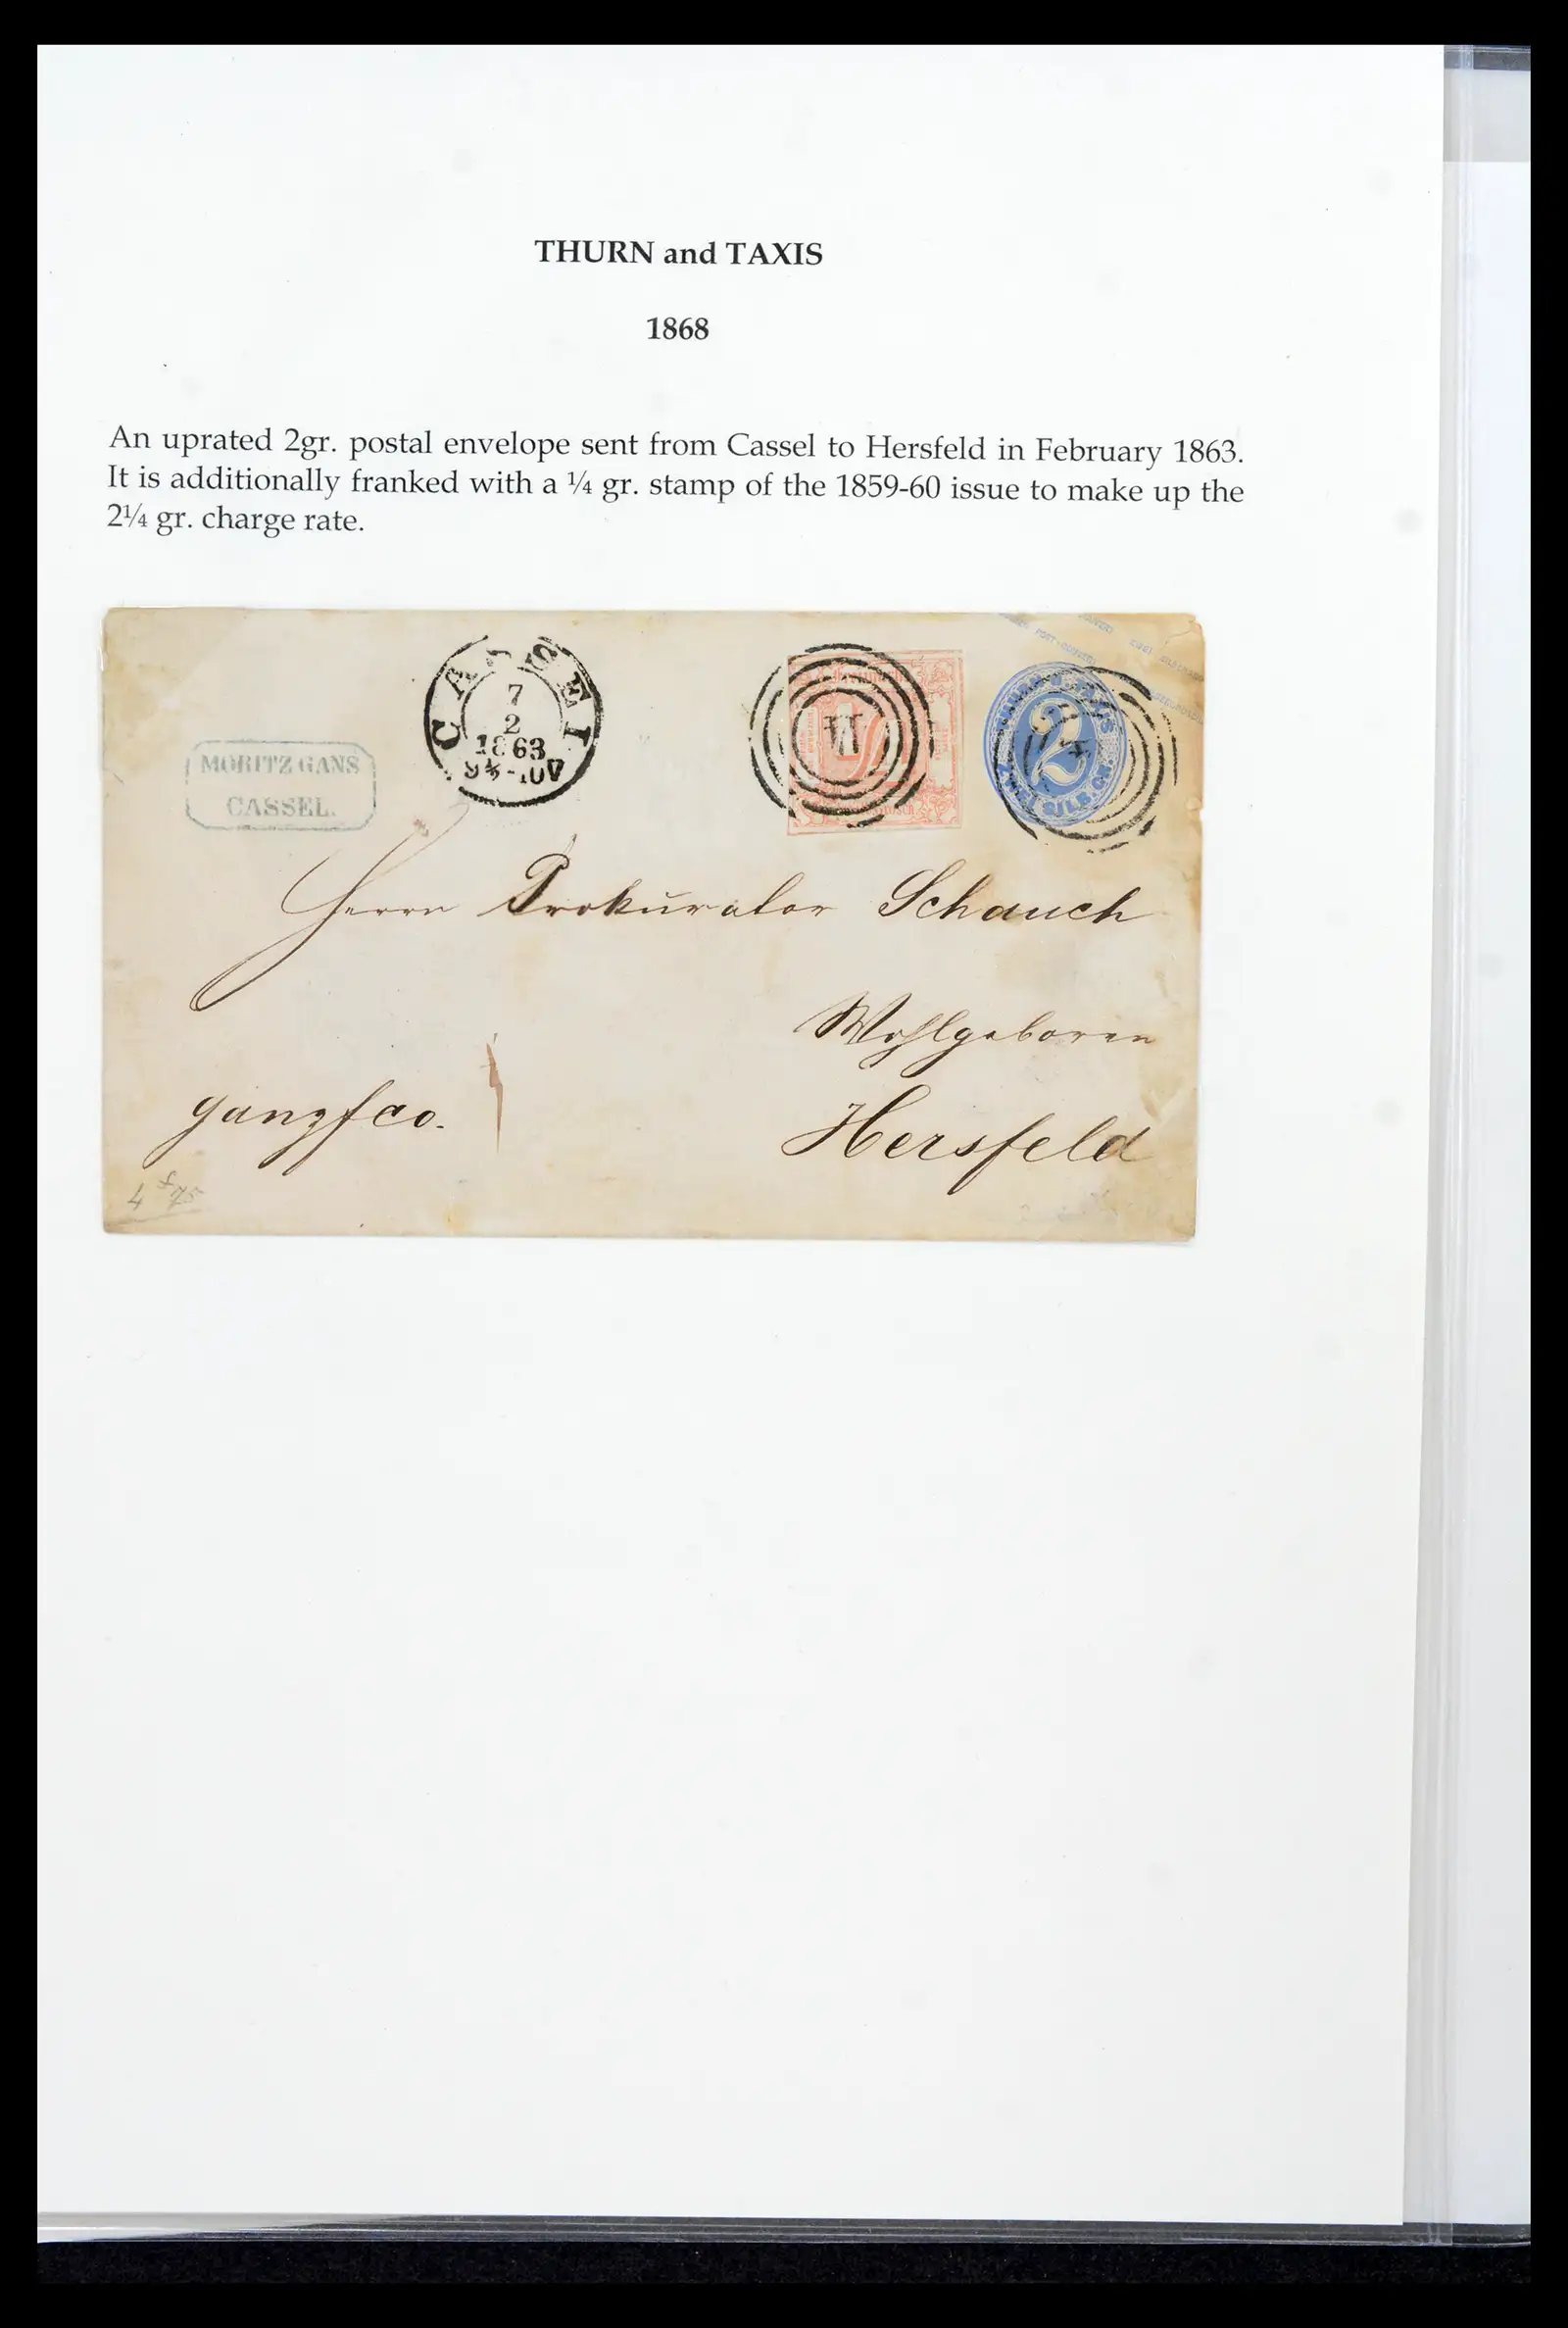 THURN and TAXIS
1868
An uprated 2gr. postal envelope sent from Cassel to Hersfeld in February 1863.
It is additionally franked with a ¼ gr. stamp of the 1859-60 issue to make up the
2¼ gr. charge rate.
CASSEL
7
2
1863
9½-10V
MORITZ GANS
CASSEL.
THURN U. TAXIS
2
ZWEI SILB. GR.
Herrn Prokurator Schauch
Wohlgeboren
ganzfco.
Hersfeld
4 75